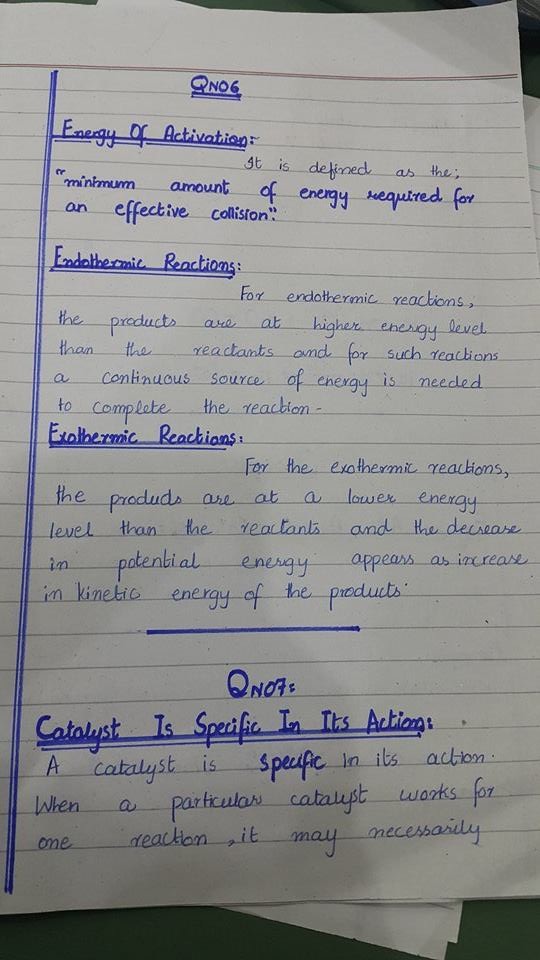 QNO6
Energy Of Activation:-
It is defined as the;
"minimum amount of energy required for
an effective collision".
Endothermic Reactions:
For endothermic reactions,
the products are at higher energy level
than the reactants and for such reactions
a continuous source of energy is needed
to complete the reaction-
Exothermic Reactions:
For the exothermic reactions,
the products are at a lower energy
level than the reactants and the decrease
in potential energy appears as increase
in kinetic energy of the products.
QNO7:
Catalyst Is Specific In Its Action:
A catalyst is specific in its action.
When a particular catalyst works for
one reaction, it may necessarily